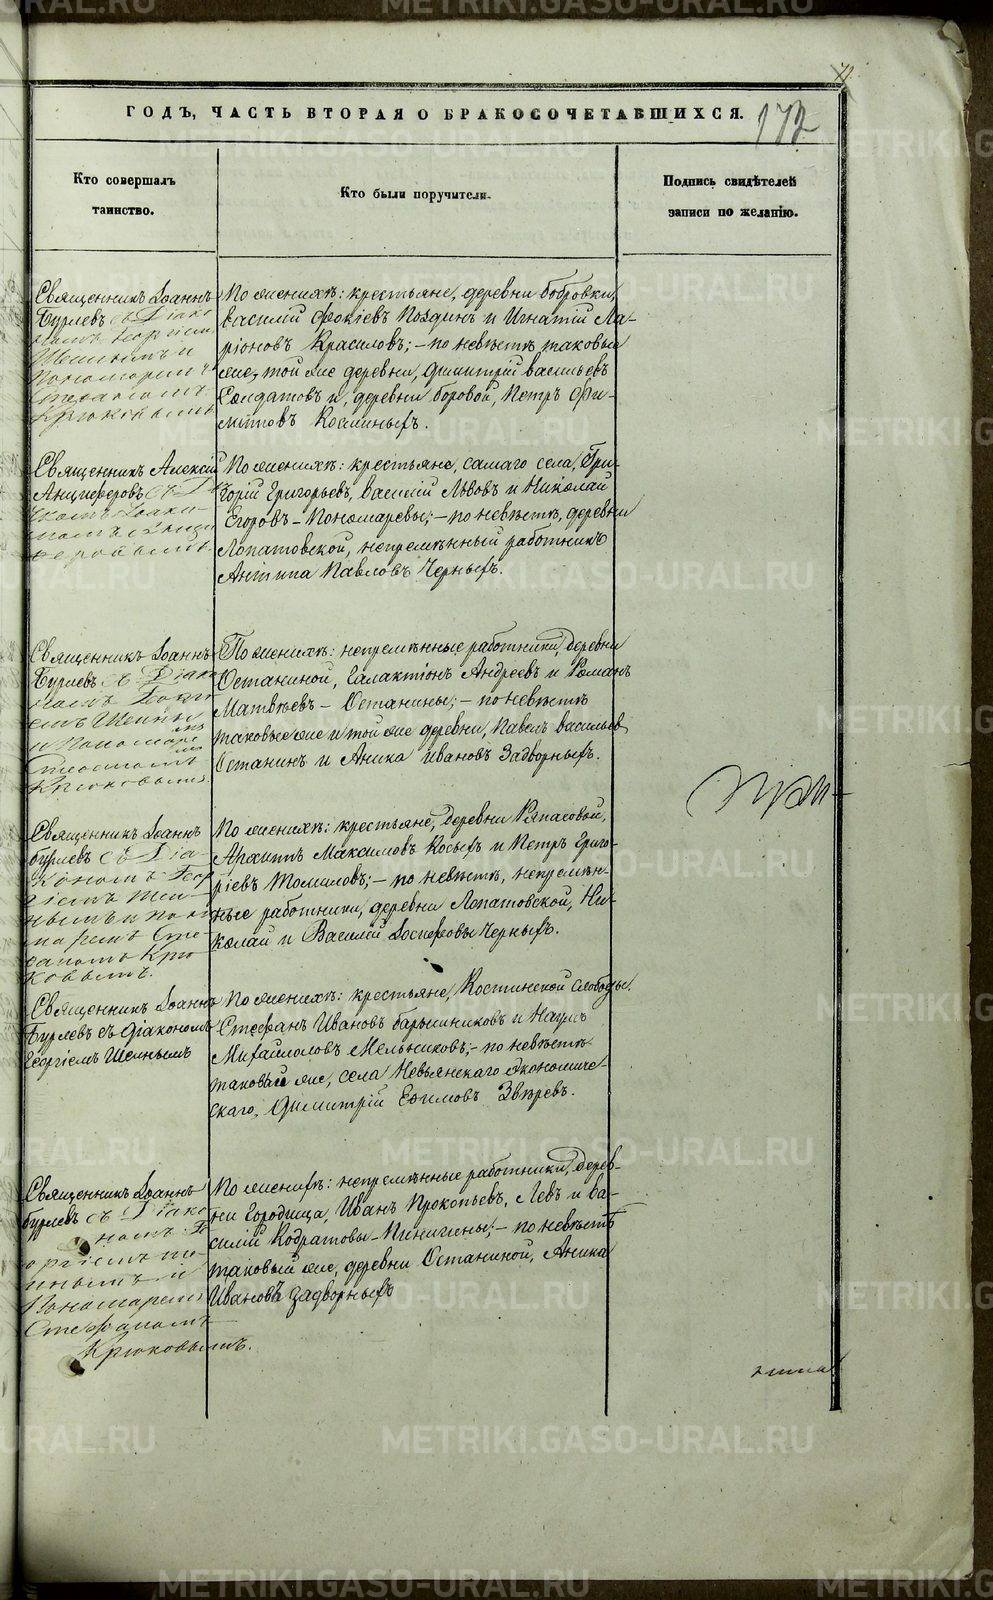 ГОДЪ, ЧАСТЬ ВТОРАЯ О БРАКОСОЧЕТАВШИХСЯ.
172
Кто совершалъ
таинство.
Кто были поручители.
Подпись свидѣтелей
записи по желанію.
Священникъ Іоаннъ
Бурлевъ съ Діако
номъ Георгіемъ
Пономаремъ
Стефаномъ
Крюковымъ
По женихѣ: крестьяне, деревни Бобровки,
Василій Фокіевъ Поздинъ и Игнатій Ла-
ріоновъ Красиловъ; – по невѣстѣ таковые
же, той же деревни, Димитрій Васильевъ
Солдатовъ и, деревни Боровой, Петръ Фи-
литовъ Косминыхъ.
Священникъ Алексій
Анциферовъ съ
По женихѣ: крестьяне, самаго села, Гри-
горій Григорьевъ, Василій Львовъ и Николай
Егоровъ – Пономаревы; – по невѣстѣ, деревни
Лопатовской, непремѣнный работникъ
Антипа Павловъ Черныхъ.
Священникъ Іоаннъ
Бурлевъ съ Діако
номъ
и Пономаре
Стефаномъ
Крюковымъ.
По женихѣ: непремѣнные работники, деревни
Останиной, Галактіонъ Андреевъ и Романъ
Матвѣевъ – Останины; – по невѣстѣ
таковые же и той же деревни, Павелъ Васильев
Останинъ и Аника Ивановъ Задворныхъ.
При-
Священникъ Іоаннъ
Бурлевъ съ Діа-
кономъ Геор
гіемъ
нымъ и поно
маремъ Сте-
фаномъ Крю
ковымъ.
По женихѣ: крестьяне, деревни Ряпасовой,
Архиппъ Максимовъ Косыхъ и Петръ Григо-
ріевъ Томиловъ; – по невѣстѣ, непремѣн-
ные работники, деревни Лопатовской, Ни-
колай и Василій Іосифовы Черныхъ.
Священникъ Іоаннъ
Бурлевъ съ Діакономъ
Георгіемъ
По женихѣ: крестьяне, Костинской слободы,
Стефанъ Ивановъ Барышниковъ и Наумъ
Михайлоловъ Мельниковъ; – по невѣстѣ
таковый же, села Невьянскаго экономиче-
скаго, Димитрій Ефимовъ Звѣревъ.
Священникъ Іоаннъ
Бурлевъ съ Діако
номъ Ге
оргіемъ
нымъ и
Пономаремъ
Стефаномъ
Крюковымъ.
По женихѣ: непремѣнные работники, дерев-
ни Городища, Иванъ Прокопьевъ, Левъ и Ва-
силій Кодратовы – Пинигины; – по невѣстѣ
таковый же, деревни Останиной, Аника
Ивановъ Задворныхъ
METRIKI.GASO-URAL.RU